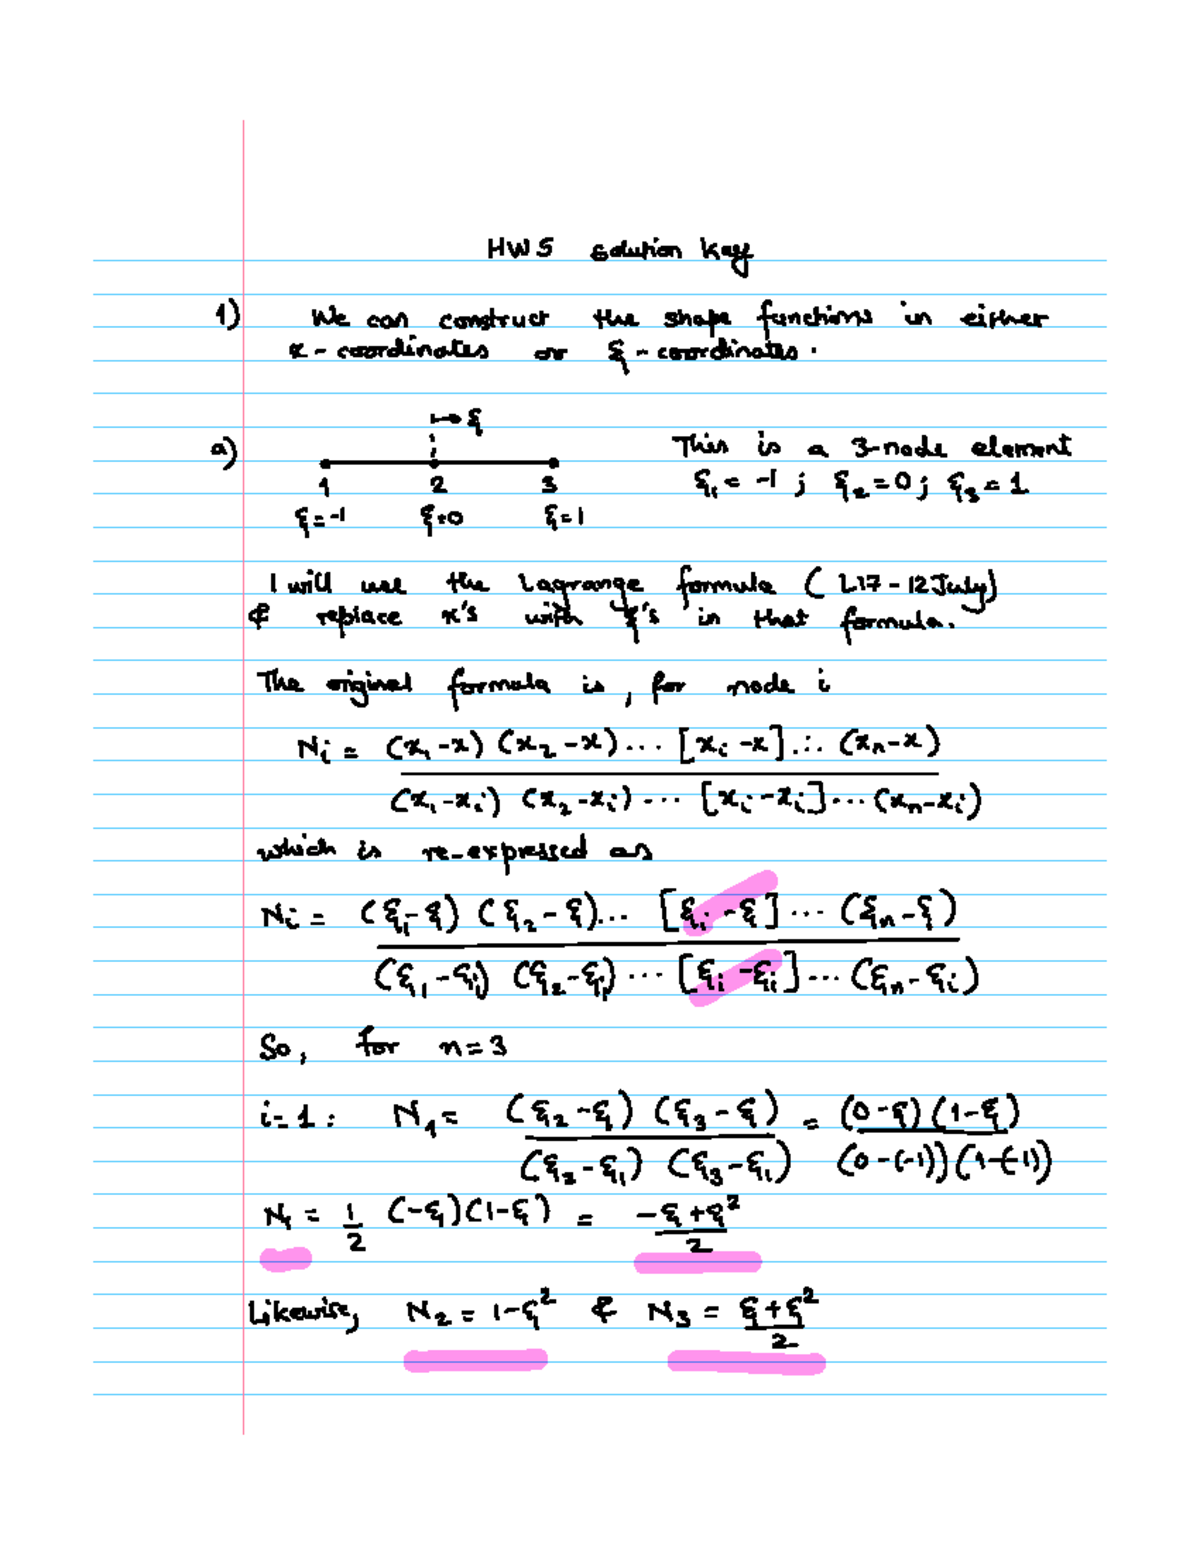 HW 5 solution key
1) We can construct the shape functions in either
x - coordinates or ξ - coordinates.
↦ ξ
a) This is a 3-node element
1 2 3 ξ₁ = -1 ; ξ₂ = 0 ; ξ₃ = 1
ξ = -1 ξ=0 ξ=1
I will use the Lagrange formula ( L17 - 12 July)
& replace x's with ξ's in that formula.
The original formula is, for node i
Nᵢ = (x₁ - x) (x₂ - x) ... [xᵢ - x] ... (xₙ - x)
(x₁ - xᵢ) (x₂ - xᵢ) ... [xᵢ - xᵢ] ... (xₙ - xᵢ)
which is re-expressed as
Nᵢ = (ξ₁ - ξ) (ξ₂ - ξ) ... [ξᵢ - ξ] ... (ξₙ - ξ)
(ξ₁ - ξᵢ) (ξ₂ - ξᵢ) ... [ξᵢ - ξᵢ] ... (ξₙ - ξᵢ)
So, for n = 3
i = 1 : N₁ = (ξ₂ - ξ) (ξ₃ - ξ) = (0 - ξ) (1 - ξ)
(ξ₂ - ξ₁) (ξ₃ - ξ₁) (0 - (-1)) (1 - (-1))
N₁ = 1/2 (-ξ)(1-ξ) = -ξ + ξ²
2
Likewise, N₂ = 1 - ξ² & N₃ = ξ + ξ²
2